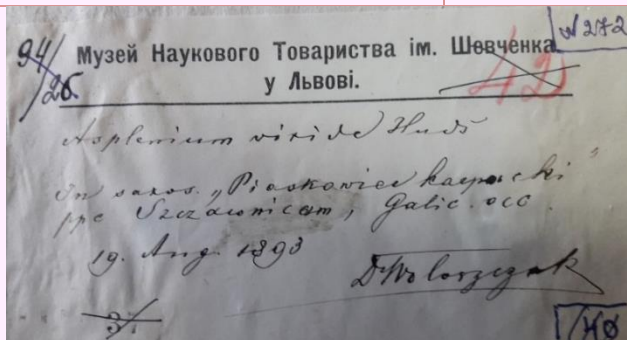 94/26
N 272
Музей Наукового Товариства ім. Шевченка
у Львові.
42
Asplenium viride Huds
In saxos. „Piaskowiec karpacki”
ppe Szczawnicam, Galic. occ.
19. Aug. 1893
Dr Wołoszczak